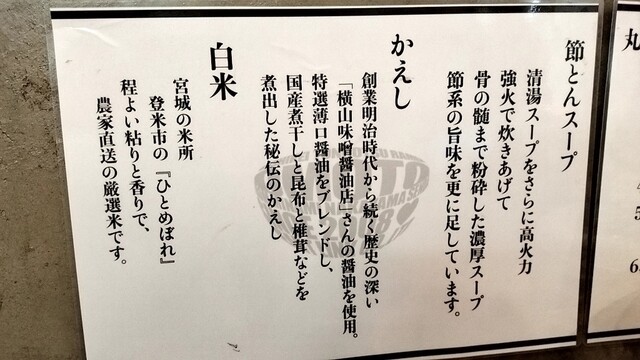 節とんスープ
清湯スープをさらに高火力
強火で炊きあげて
骨の髄まで粉砕した濃厚スープ
節系の旨味を更に足しています。
かえし
創業明治時代から続く歴史の深い
「横山味噌醤油店」さんの醤油を使用。
特選薄口醤油をブレンドし、
国産煮干しと昆布と椎茸などを
煮出した秘伝のかえし
白米
宮城の米所
登米市の『ひとめぼれ』
程よい粘りと香りで、
農家直送の厳選米です。
丸